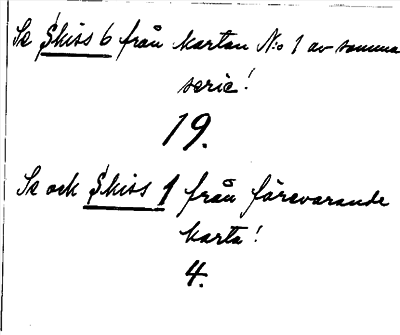 Se Skiss 6 från kartan N:o 1 av samma
serie!
19.
Se och Skiss 1 från försvarande
karta!
4.